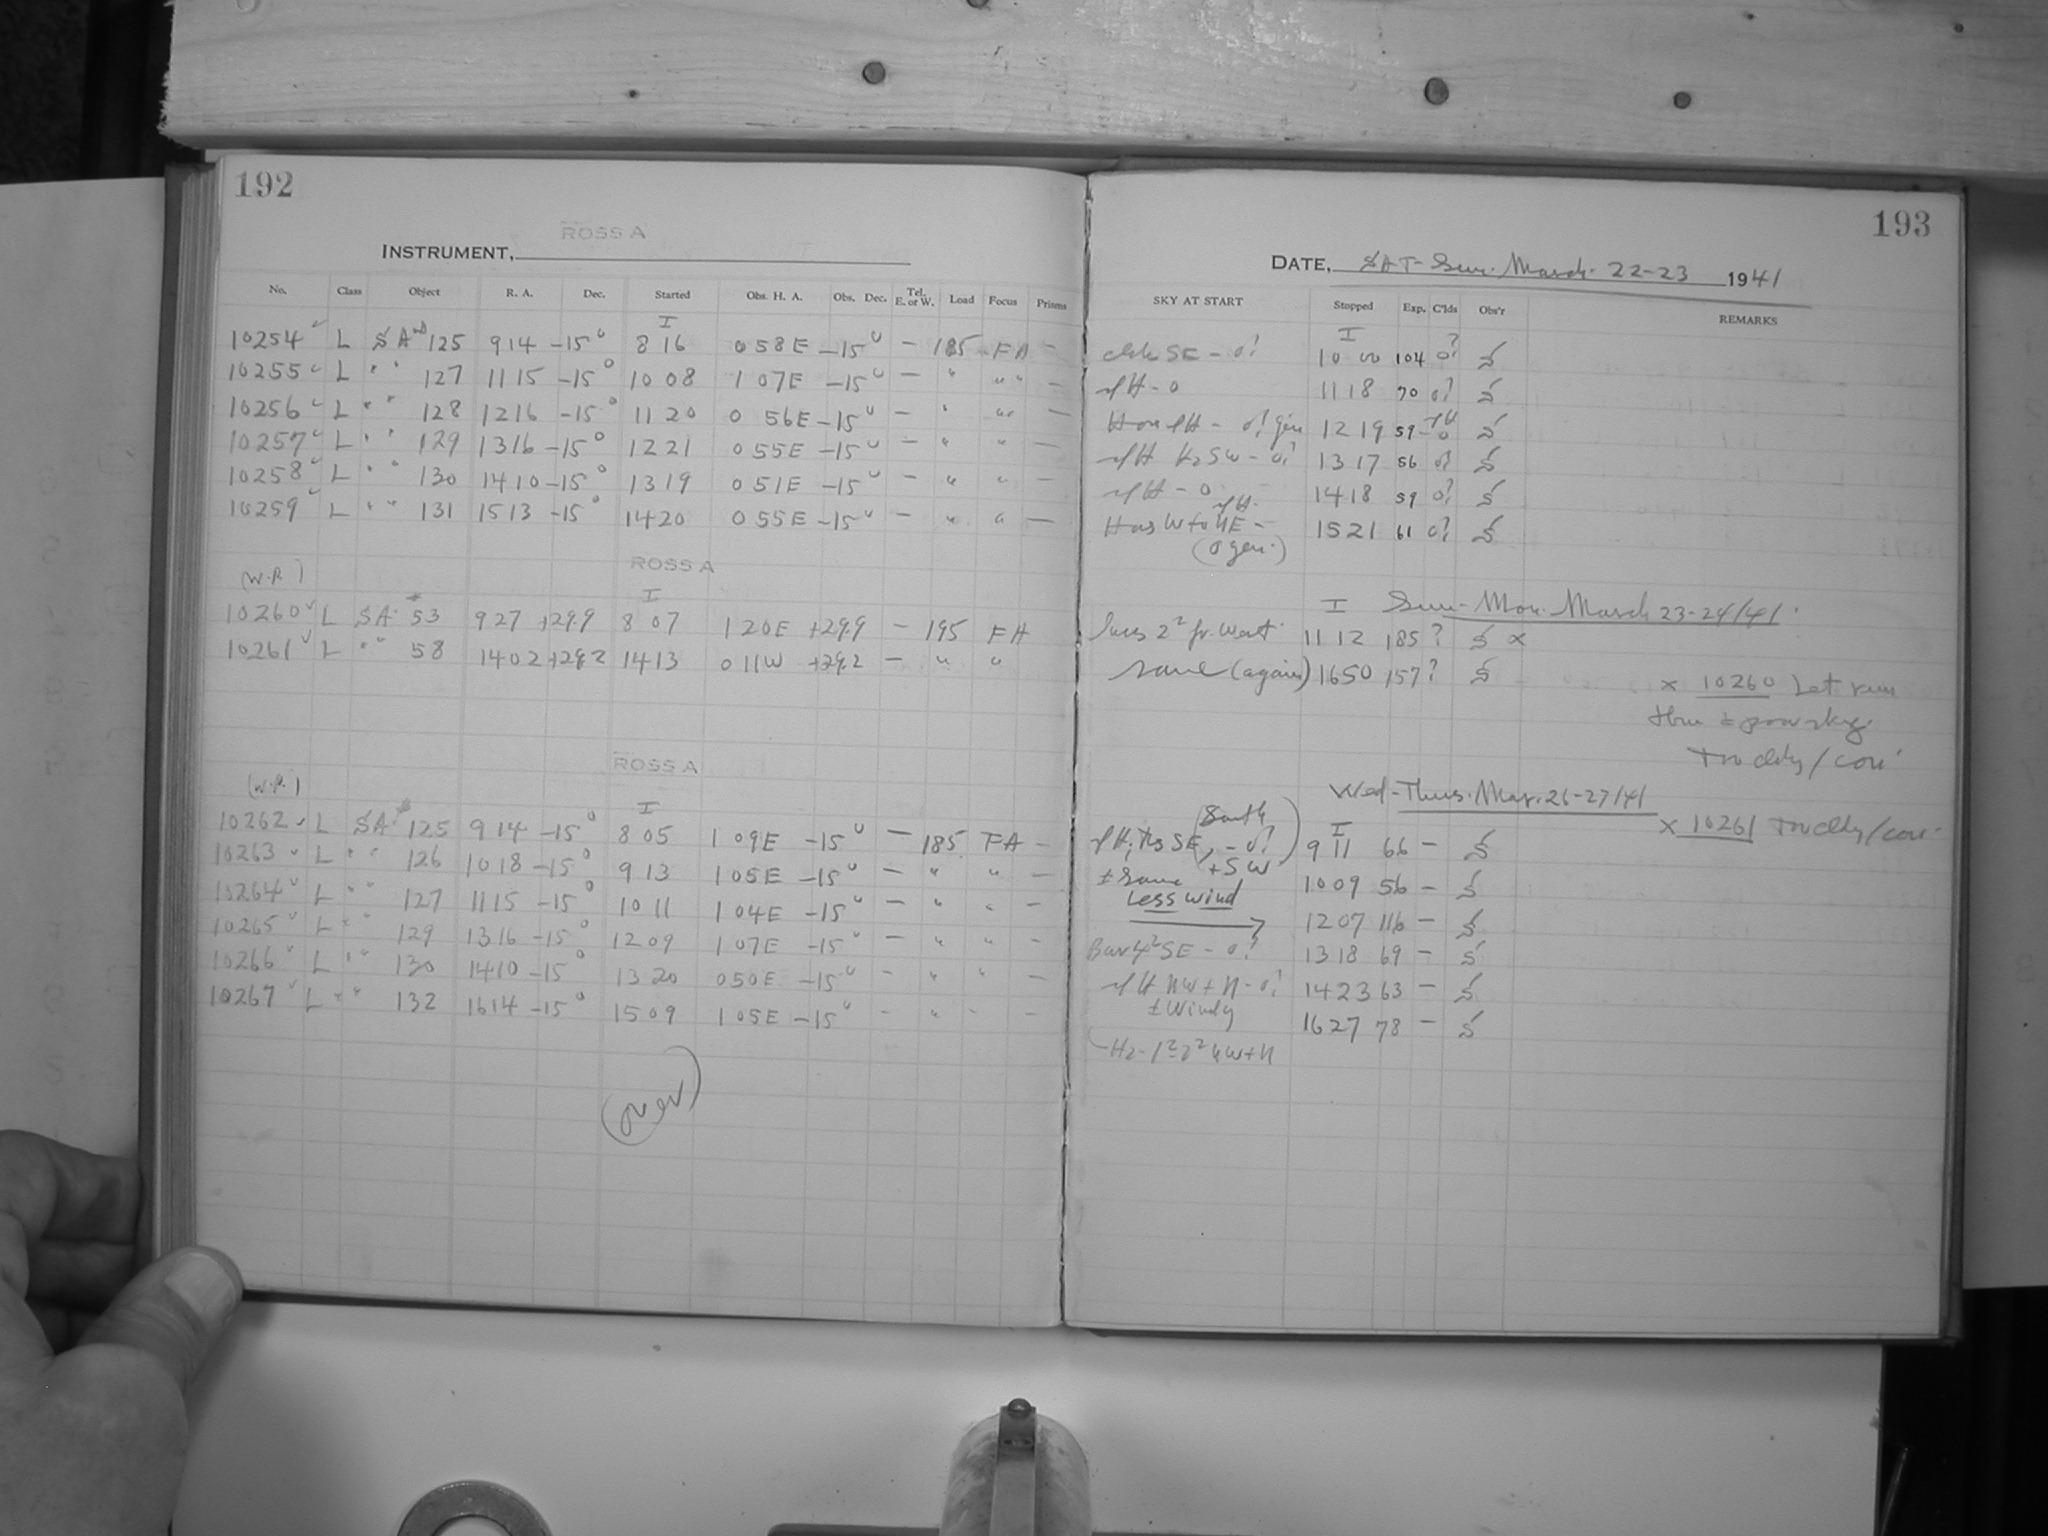 192
ROSS A
INSTRUMENT,
No. Class Object R. A. Dec. Started Obs. H. A. Obs. Dec. Tel. E. or W. Load Focus Prisms
I
10254 L SA 125 9 14 -15° 8 16 0 58 E -15° - 185 FA -
10255 L " " 127 11 15 -15° 10 08 1 07 E -15° - " " " -
10256 L " " 128 12 16 -15° 11 20 0 56 E -15° - " " " -
10257 L " " 129 13 16 -15° 12 21 0 55 E -15° - " " -
10258 L " " 130 14 10 -15° 13 19 0 51 E -15° - " " -
10259 L " " 131 15 13 -15° 14 20 0 55 E -15° - " " -
ROSS A
(W.R.)
I
10260 L SA 53 9 27 +29.9 8 07 1 20 E +29.9 - 195 FA
10261 L " " 58 14 02 +29.2 14 13 0 11 W +29.2 - " "
ROSS A
(W.R.)
I
10262 L SA 125 9 14 -15° 8 05 1 09 E -15° - 185 FA -
10263 L " " 126 10 18 -15° 9 13 1 05 E -15° - " " -
10264 L " " 127 11 15 -15° 10 11 1 04 E -15° - " " -
10265 L " " 129 13 16 -15° 12 09 1 07 E -15° - " " -
10266 L " " 130 14 10 -15° 13 20 0 50 E -15° - " " -
10267 L " " 132 16 14 -15° 15 09 1 05 E -15° - " " -
(over)
193
DATE, SAT-Sun. March 22-23 1941
SKY AT START Stopped Exp. C'lds Obs'r REMARKS
I
SE - 0? 10 00 104 0? S
H - 0 11 18 70 0? S
H - 0? gen 12 19 59 S
H SW - 0? 13 17 56 0? S
H - 0 14 18 59 0? S
W to NE - 15 21 61 0? S
(0 gen.)
I Sun-Mon. March 23-24/41
2² fr. West 11 12 185 ? S x
same (again) 16 50 157 ? S
x 10260 Let run
thru ± poor sky.
/ cori
Wed-Thurs. Mar. 26-27/41
x 10261 / cori
(South
I
SE, - 0? 9 11 66 - S
+SW)
± same 10 09 56 - S
Less wind
→ 12 07 116 - S
Bar 4² SE - 0? 13 18 69 - S
H NW + N - 0? 14 23 63 - S
± Windy
16 27 78 - S
Hz - 1²-2² NW+N